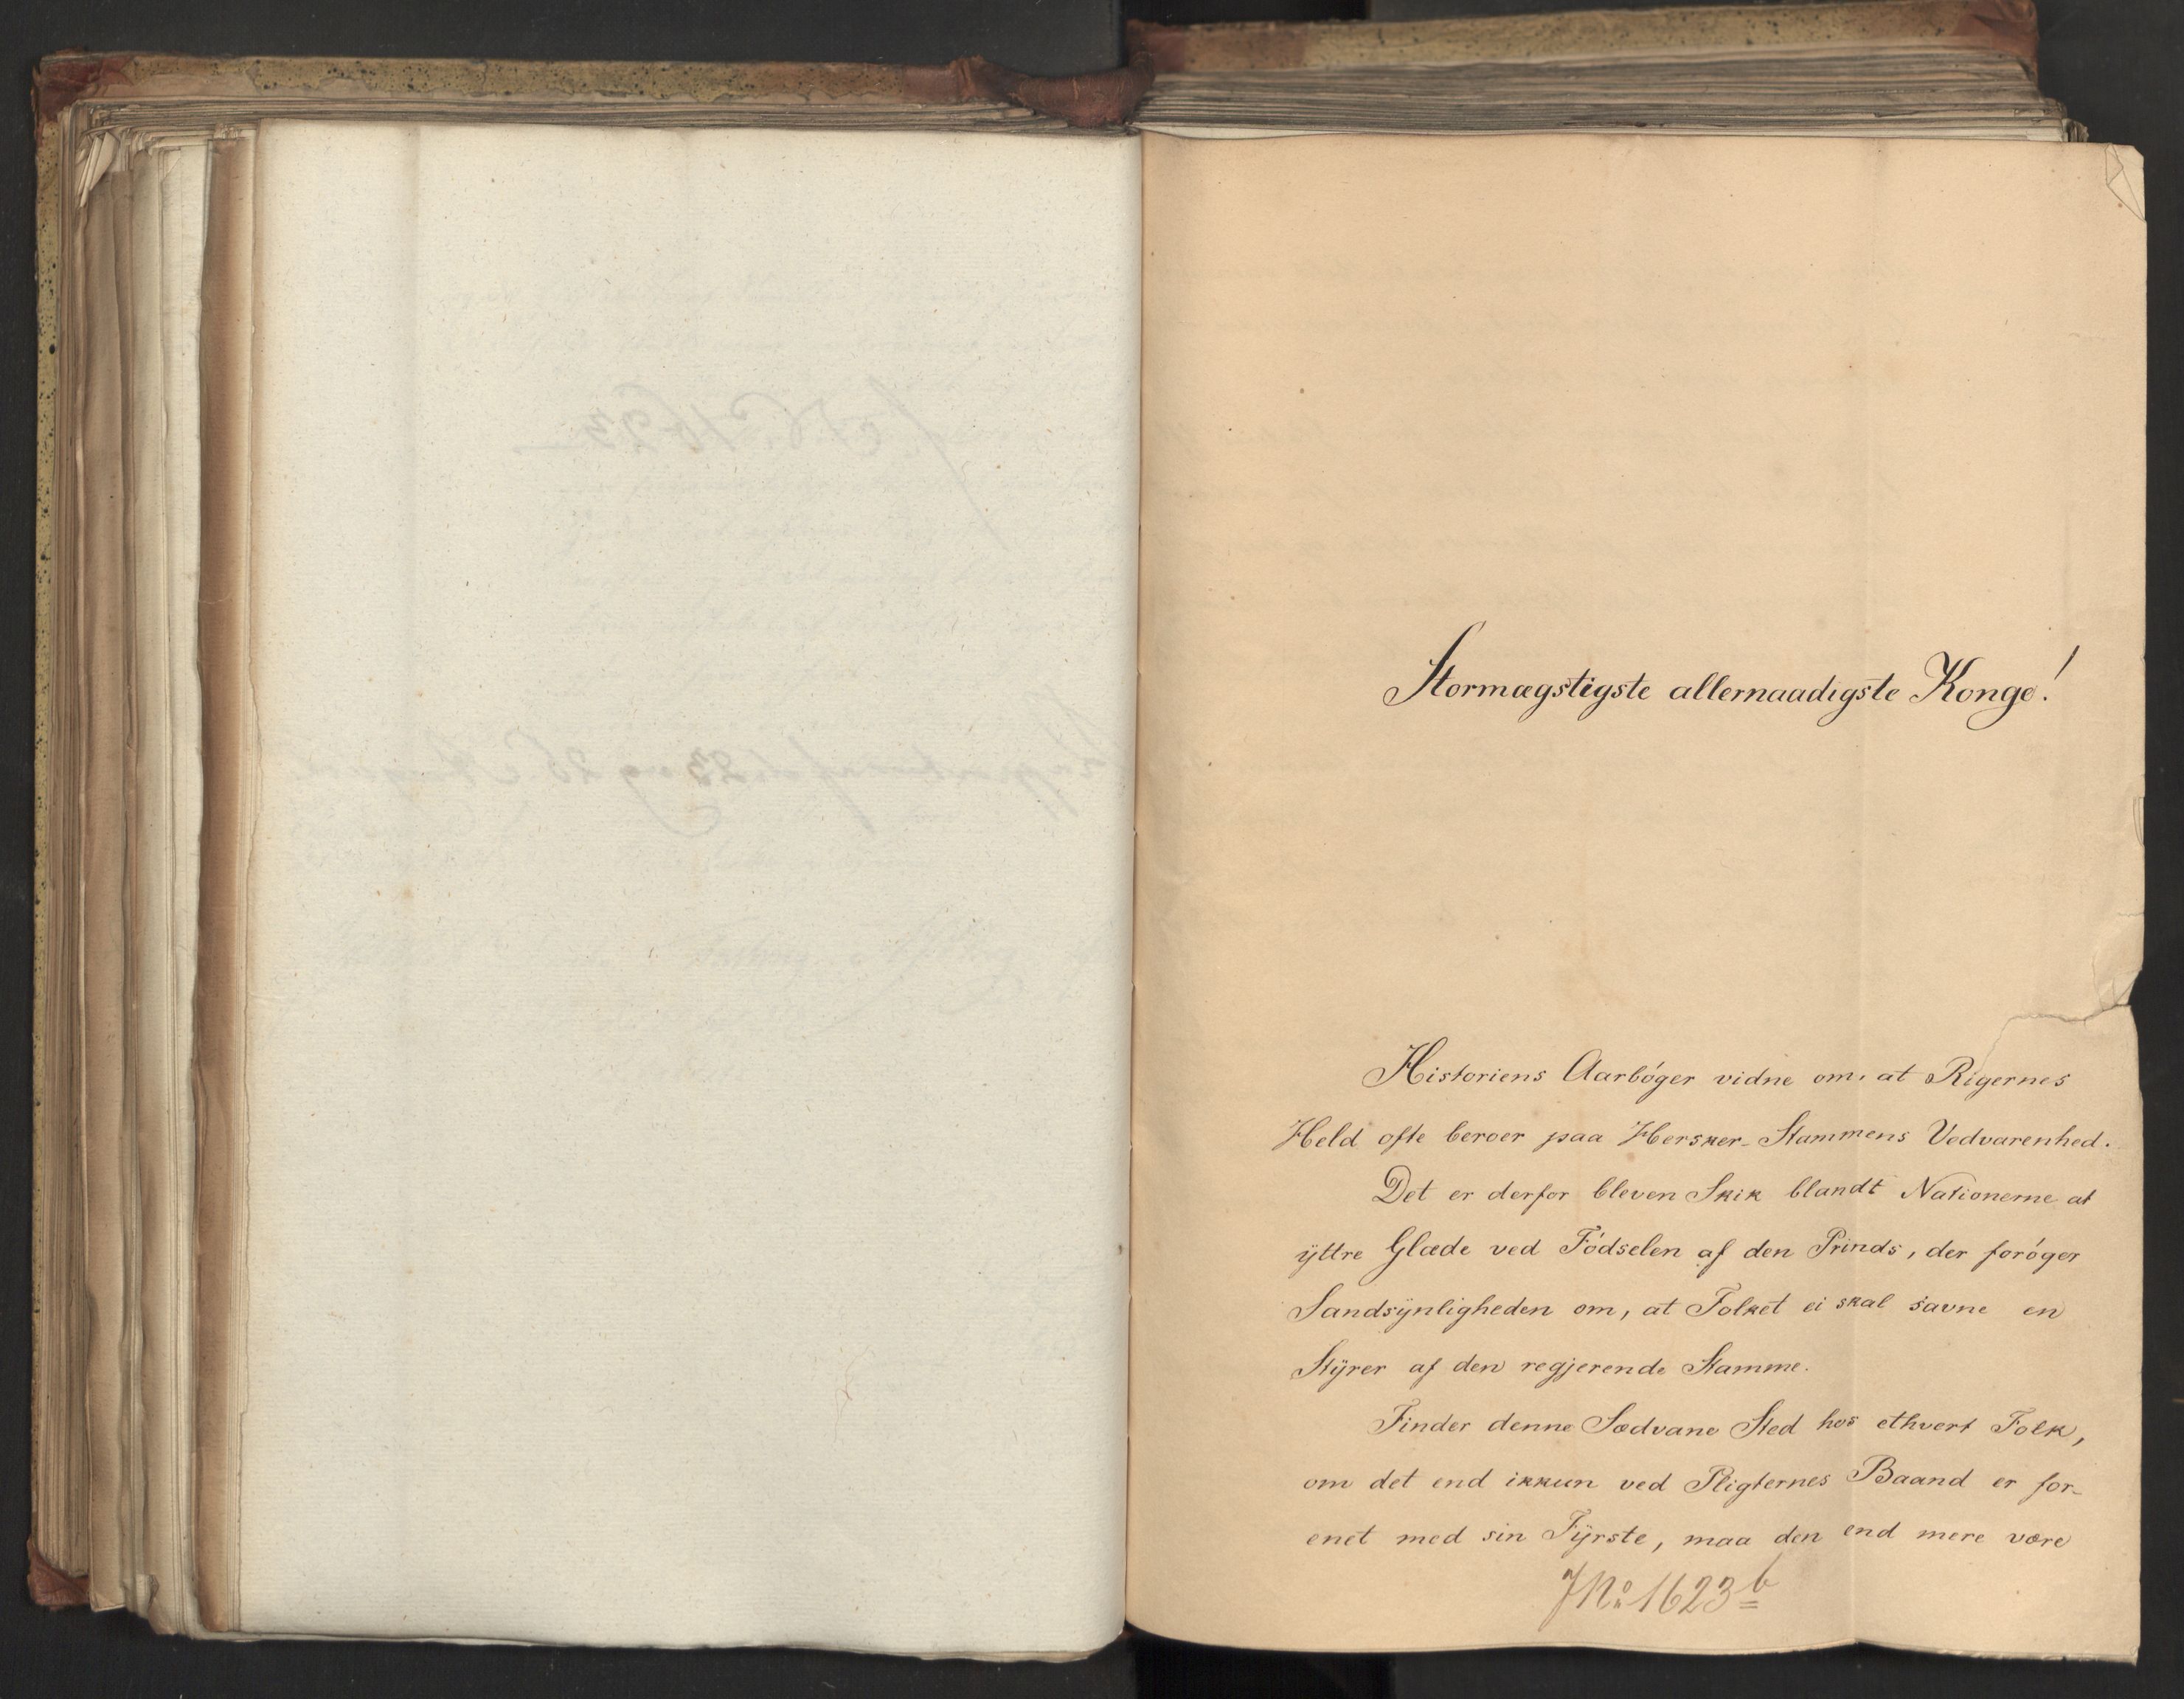 Stormægstigste allernaadigste Konge!
Historiens Aarbøger vidne om, at Rigernes
Held ofte beroer paa Hersker-Stammens Vedvarenhed.
Det er derfor bleven Skik blandt Nationerne at
ÿttre Glæde ved Fødselen af den Prinds, der forøger
Sandsÿnligheden om, at Folket ei skal savne en
Stÿrer af den regjerende Stamme.
Finder denne Sædvane Sted hos ethvert Folk,
om det end ikkun ved Pligternes Baand er for-
enet med sin Fÿrste, maa den end mere være
J No 1623 b